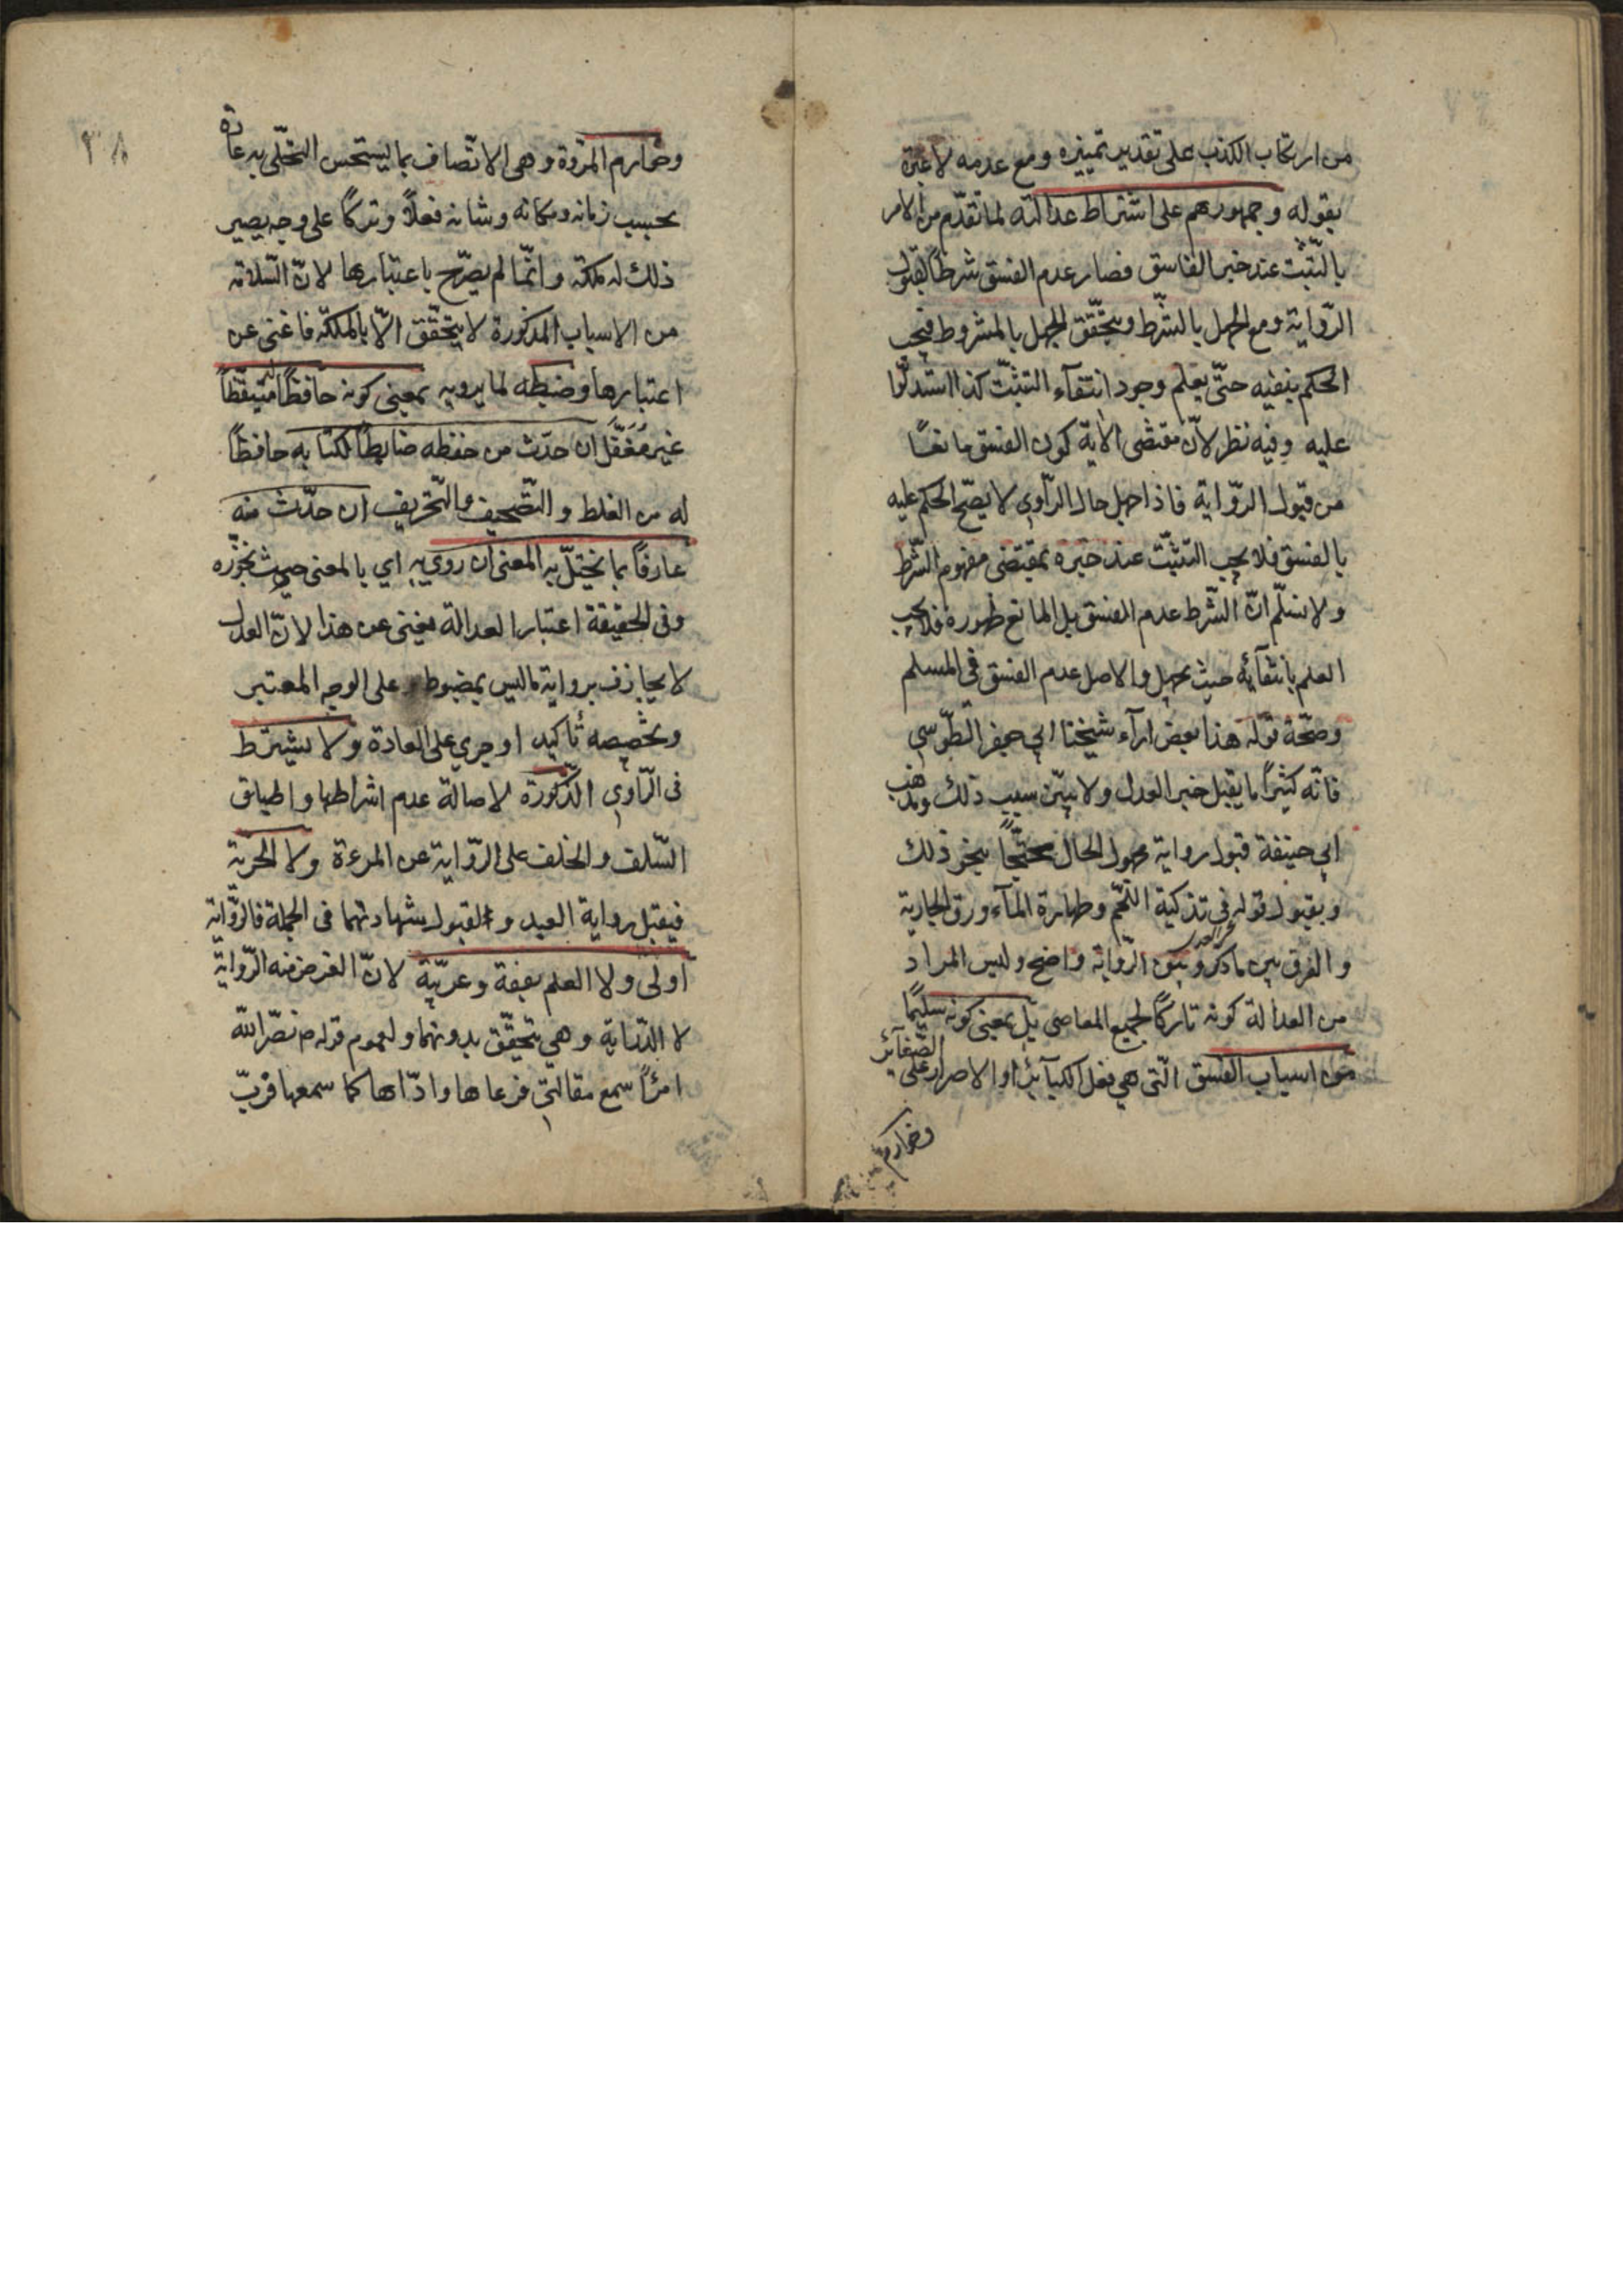 من ارتكاب الكذب على تقدير تميزه ومع عدمه لا عبرة
بقوله وجمهورهم على اشتراط عدالته لما تقدّم من الامر
بالتّثبت عند خبر الفاسق فصار عدم الفسق شرطاً لقبول
الرّواية ومع الجهل بالشّرط ويتحقّق الجهل بالمشروط فيجب
الحكم بنفيه حتّى يعلم وجود انتفاء التثبّت كذا استدلّوا
عليه وفيه نظر لانّ مقتضى الآية كون الفسق مانعًا
من قبول الرّواية فاذا جهل حال الرّاوي لا يصّح الحكم عليه
بالفسق فلا يجب التثبّت عند خبره بمقتضى مفهوم الشّرط
ولا نسلّم انّ الشّرط عدم الفسق بل المانع ظهوره فلا يجب
العلم بانتفائه حيث يجهل والاصل عدم الفسق فى المسلم
وصحّة قوله هذا بعض اراء شيخنا ابي جعفر الطّوسي
فانّه كثيرًا ما يقبل خبر العدل ولا يبيّن سبب ذلك ومذهب
ابي حنيفة قبول رواية مجهول الحال محتجّاً بنحو ذلك
وبقبول قوله في تذكية اللّحم وطهارة الماء ورق الجارية
والفرق بين ما ذكر وبين الرّواية واضح وليس المراد
من العدالة كونه تاركًا لجميع المعاصى بل بمعنى كونه سليمًا
من اسباب الفسق الّتى هي فعل الكبآئر او الاصرار على الصّغآئر
وخوارم
٣٨
وخوارم المروّة وهى الاتّصاف بما يستحسن التحلّى به عادة
بحسب زمانه ومكانه وشانه فعلاً وتركًا على وجه يصير
ذلك له ملكة وانّما لم يصرّح باعتبارها لانّ السّلامة
من الاسباب المذكورة لا يتحقّق الاّ بالملكة فاغنى عن
اعتبارها وضبطه لما يرويه بمعنى كونه حافظًا متيقّظاً
غير مغفّل ان حدّث من حفظه ضابطًا لكتابه حافظاً
له من الغلط والتّصحيف والتّحريف ان حدّث منه
عارفًا بما يختلّ به المعنى ان روى به اي بالمعنى حيث نجوّزه
وفى الحقيقة اعتبار العدالة يغنى عن هذا لانّ العدل
لا يجازف برواية ما ليس بمضبوط على الوجه المعتبر
وتخصيصه تأكيد او جري على العادة ولا يشترط
فى الرّاوي الذّكورة لاصالة عدم اشراطها واطباق
السّلف والخلف على الرّواية عن المرءة ولا الحرية
فيقبل رواية العبد ولقبول شهادتهما فى الجملة فالرّواية
اولى ولا العلم بفقه وعربيّة لانّ الغرض منه الرّواية
لا الدّراية وهي تتحقّق بدونهما ولعموم قوله ص نصّر الله
امرًأ سمع مقالتي فوعاها وادّاها كما سمعها فربّ